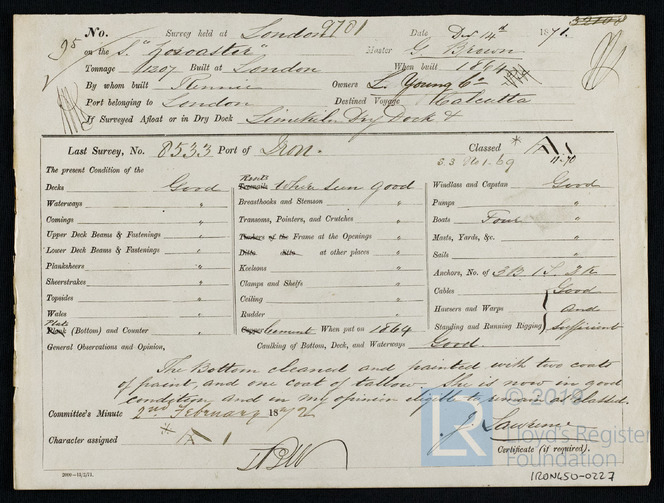 No. Survey held at London 9701 Date Decr 14th 1871.
95 on the S. "Goscaster" Master G. Brown
Tonnage 1307 Built at London When built 1864
By whom built Rennie Owners L. Young & Co
Port belonging to London Destined Voyage Calcutta
If Surveyed Afloat or in Dry Dock Limekiln Dry Dock &
Last Survey, No. 8533 Port of Iron. Classed A 1
11.70
The present Condition of the
Decks Good
Waterways "
Comings "
Upper Deck Beams & Fastenings "
Lower Deck Beams & Fastenings "
Planksheers "
Sheerstrakes "
Topsides "
Wales "
Plate
Plank (Bottom) and Counter "
Rivets
Treenails where seen good
Breasthooks and Stemson "
Transoms, Pointers, and Crutches "
Timbers of the Frame at the Openings "
Ditto ditto at other places "
Keelsons "
Clamps and Shelfs "
Ceiling "
Rudder "
Copper Cement When put on 1864
Windlass and Capstan Good
Pumps "
Boats Four "
Masts, Yards, &c. "
Sails "
Anchors, No. of 3 B 1 S. 2 K
Cables Good
Hawsers and Warps And
Standing and Running Rigging Sufficient
General Observations and Opinion, Caulking of Bottom, Deck, and Waterways Good
The Bottom cleaned and painted with two coats
of paint, and one coat of tallow. She is now in good
condition and in my opinion eligible to remain as classed.
Committee's Minute 2nd February 1872
J. Lawrence
Character assigned A 1
Certificate (if required).
2000—11/2/11.
© 2019
LR
Lloyd's Register
Foundation
IRON450-0227